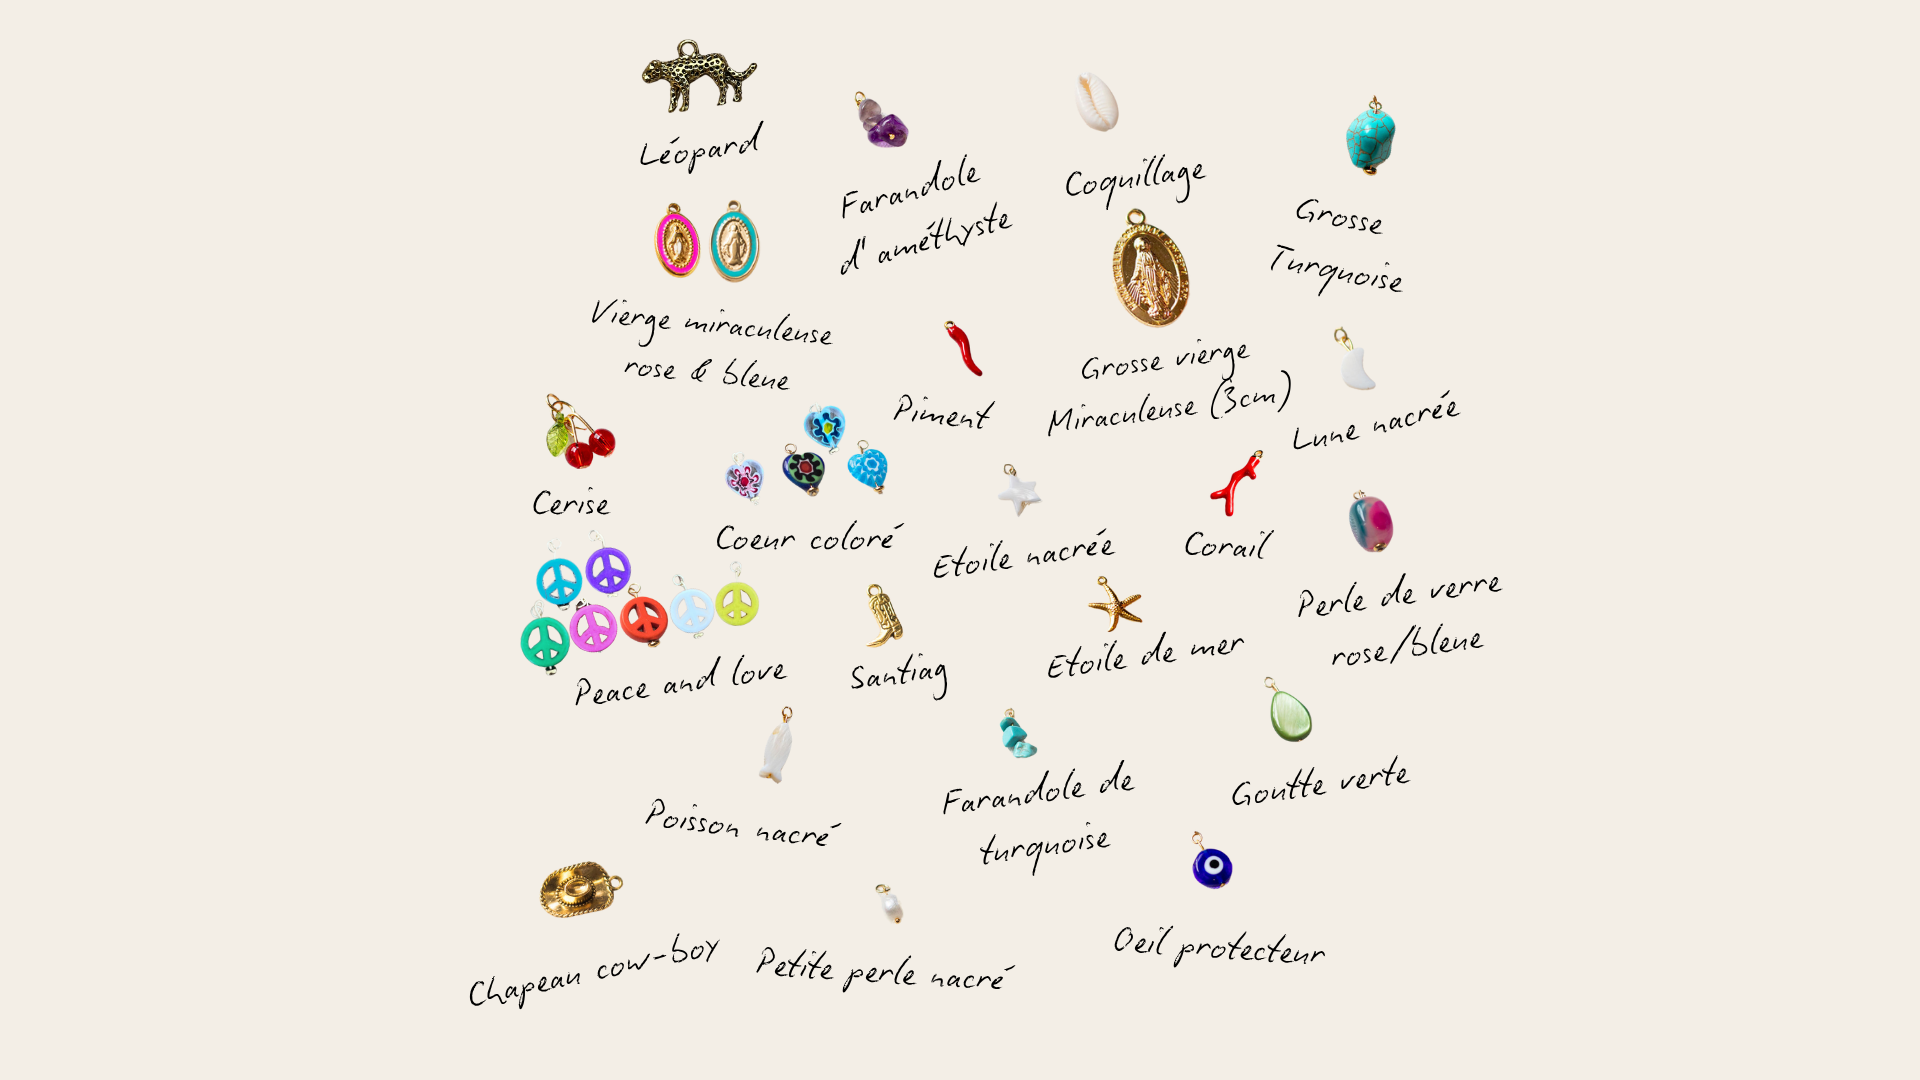 Léopard
Farandole
d'améthyste
Coquillage
Grosse
Turquoise
Vierge miraculeuse
rose & bleue
Piment
Grosse vierge
Miraculeuse (3cm)
Lune nacrée
Cerise
Coeur coloré
Etoile nacrée
Corail
Perle de verre
rose/bleue
Peace and love
Santiag
Etoile de mer
Poisson nacré
Farandole de
turquoise
Goutte verte
Chapeau cow-boy
Petite perle nacré
Oeil protecteur